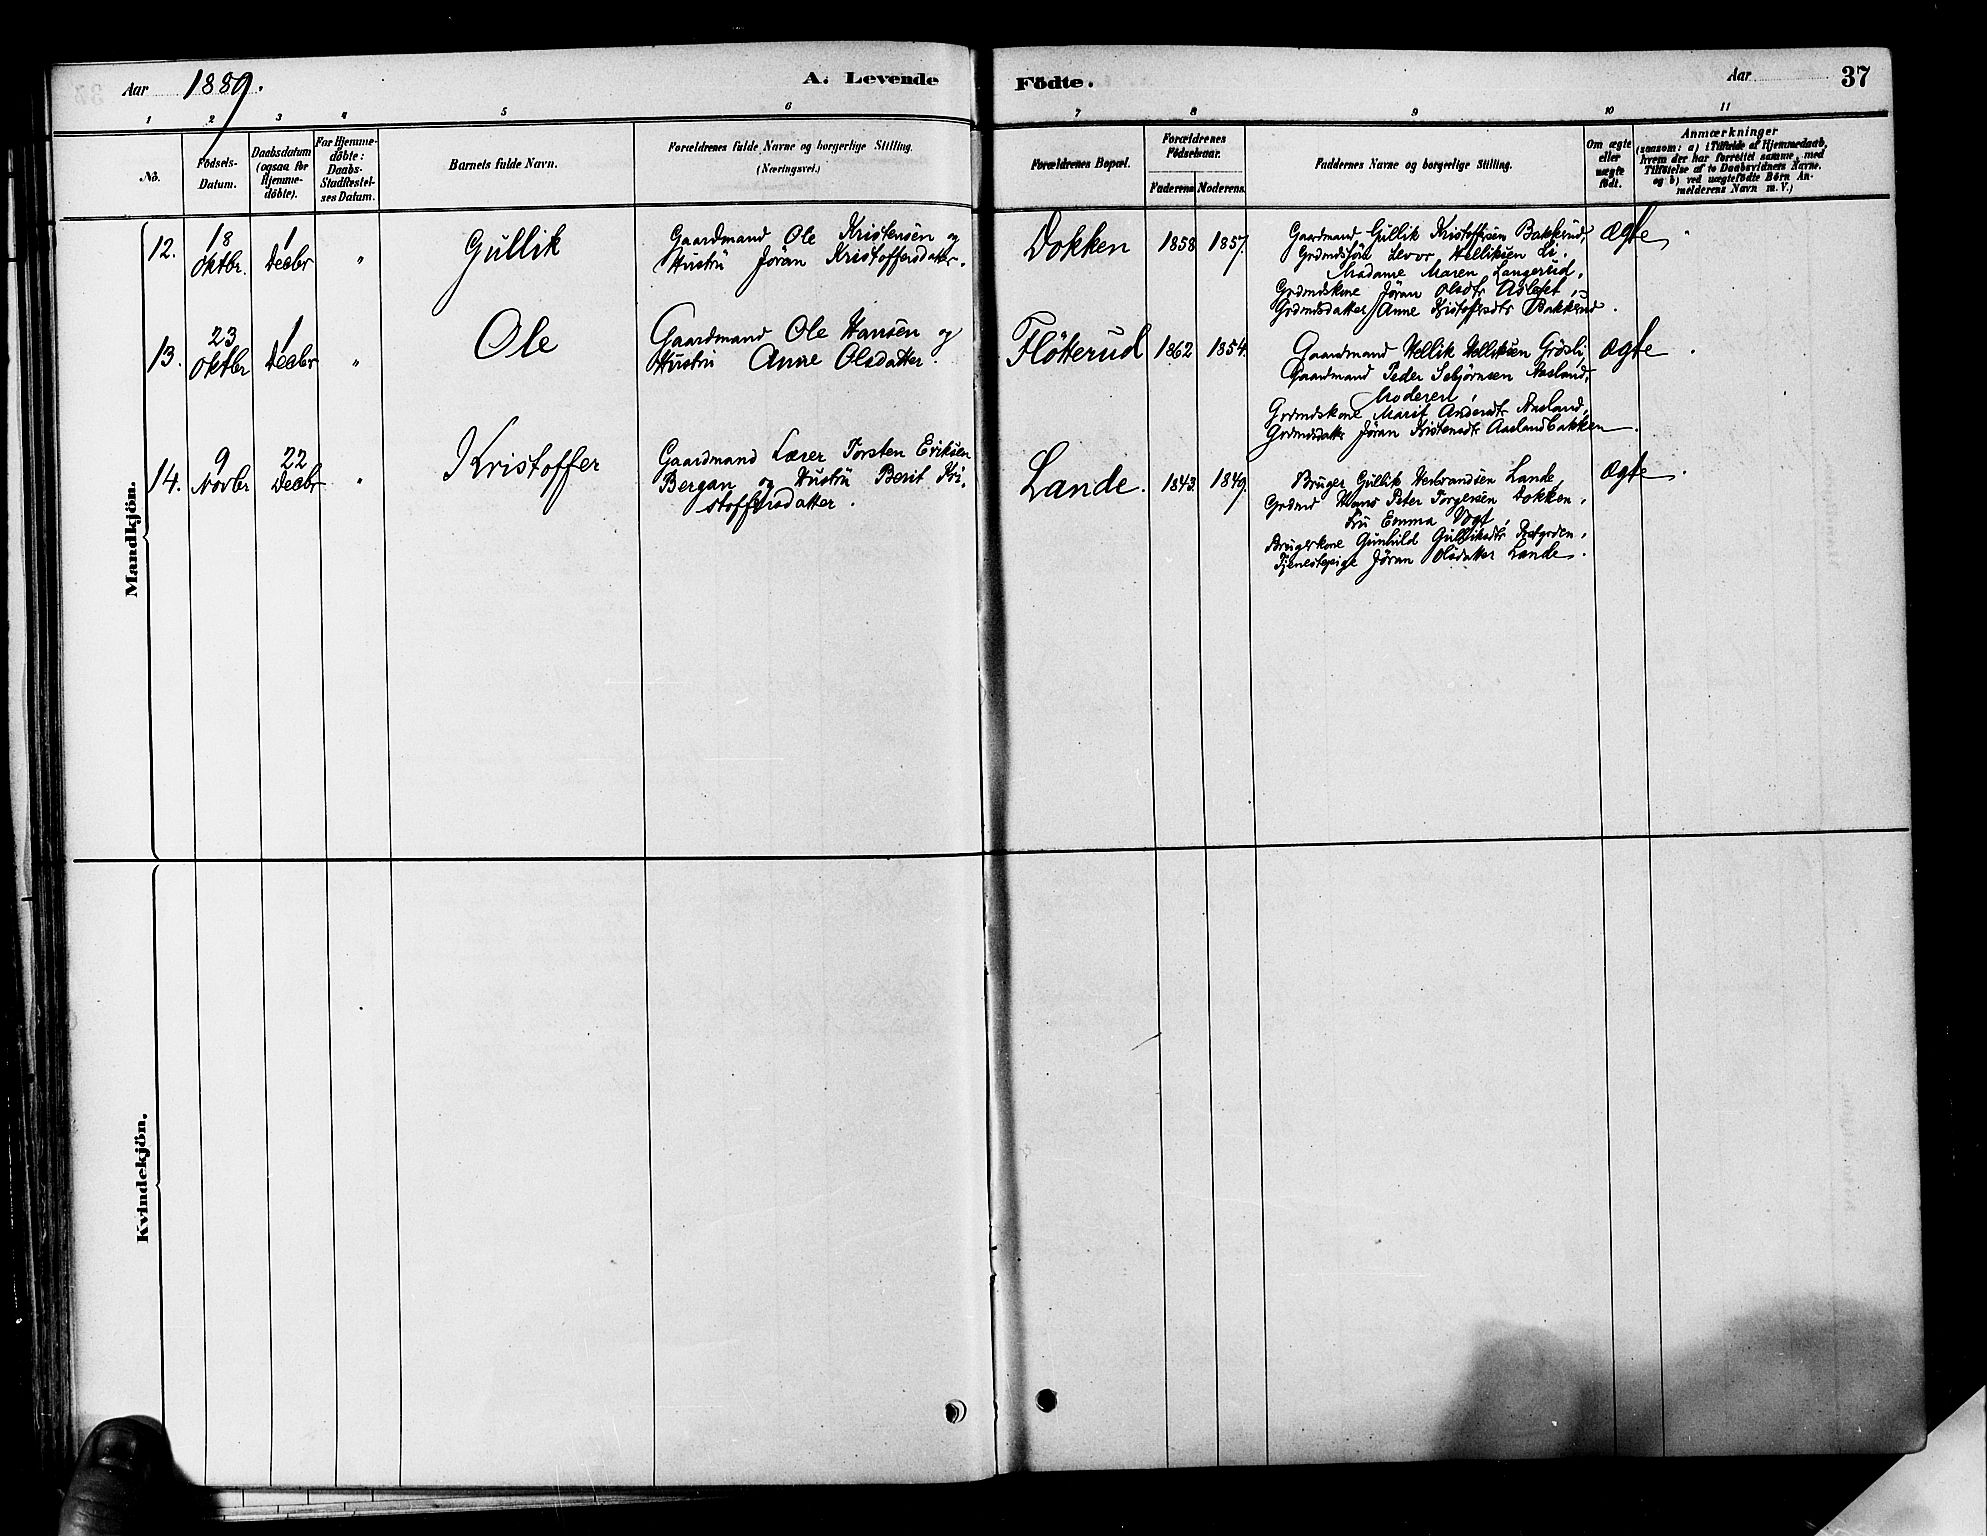 Aar 1889.
A. Levende
Födte.
Aar
37
1 2 3 4 5 6 7 8 9 10 11
No.
Födsels-
Datum.
Daabsdatum
(ogsaa for
Hjemme-
döbte).
For Hjemme-
döbte:
Daabs-
Stadfæstel-
ses Datum.
Barnets fulde Navn.
Forældrenes fulde Navne og borgerlige Stilling.
(Næringsvei.)
Forældrenes Bopæl.
Forældrenes
Födselsaar.
Faderens Moderens.
Faddernes Navne og borgerlige Stilling.
Om ægte
eller
uægte
födt.
Anmærkninger
(saasom: a) i Tilfælde af Hjemmedaab,
hvem der har forrettet samme, med
Tilföielse af to Daabsvidners Navne.
og b) ved uægtefödte Börn An-
melderens Navn m. V.)
Mandkjön.
12.
18
Oktbr.
1
Decbr
"
Gullik
Gaardmand Ole Kristensen og
Hustru Jöran Kristoffersdatter.
Dokken
1858
1857.
Gaardmand Gullik Kristoffersen Bakkerud,
Levor Helliksen Li.
Madame Maren Langerud,
Grdmdskone Jöran Olsdtr
Grdmdsdatter Anne Kristofersdtr Bakkerud.
ægte
13.
23
Oktbr
1
Decbr
"
Ole
Gaardmand Ole Hansen og
Hustru Anne Olsdatter.
Flötterud
1862
1854.
Gaardmand Hellik Helliksen Grösli,
Gaardmand Peder Sebjörnsen Aasland,
Moderen,
Grdmdskone Marit Andersdtr Aasland,
Grdmdsdatter Jöran Kristensdtr Aaslandbakken.
ægte
14.
9
Novbr
22
Decbr
"
Kristoffer
Gaardmand Lærer Torsten Eriksen
Bergan og Hustru Berit Kri-
stoffersdatter.
Lande.
1843.
1849.
Bruger Gullik Herbrandsen Lande,
Grdmd Hans Peter Torgersen Dokken,
Fru Emma Vogt,
Brugerkone Gunhild Gulliksdtr
Tjenestepige Jöran Olsdatter Lande.
ægte
Kvindekjön.